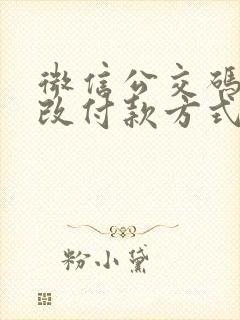 微信公交码
改付款方式
粉小黛